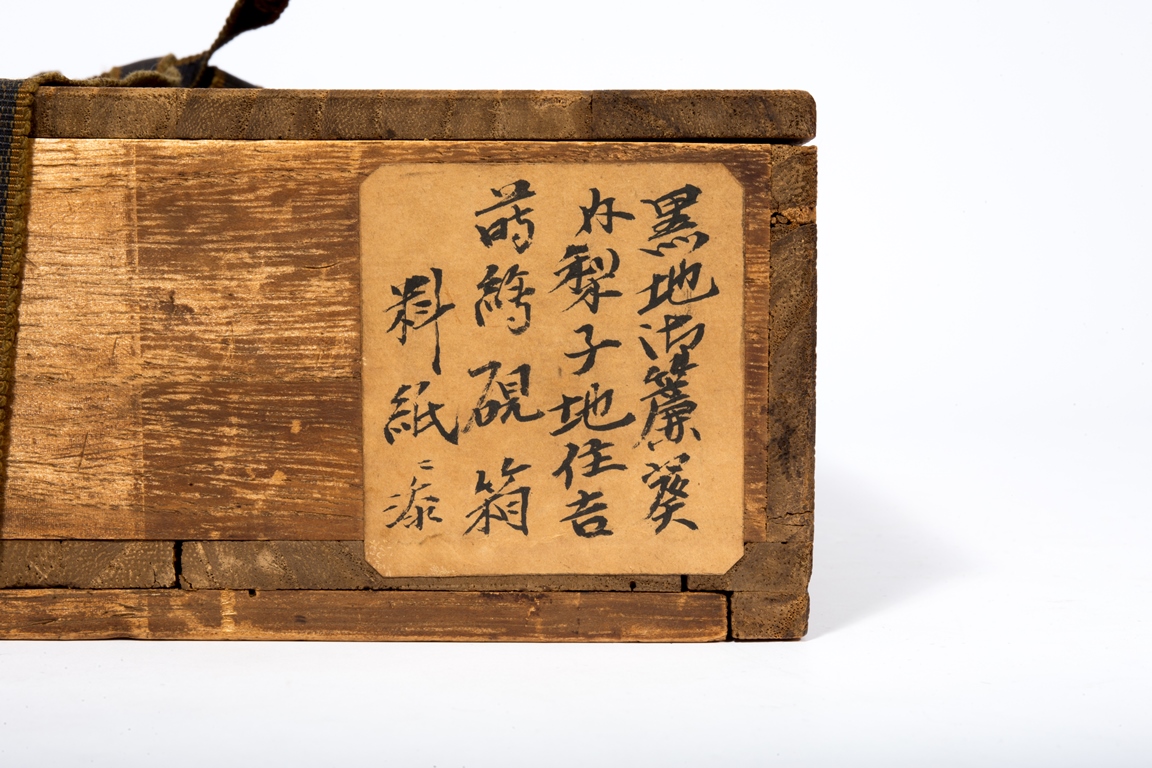 黒地御簾葵
内梨子地住吉
蒔繪硯箱
料紙添